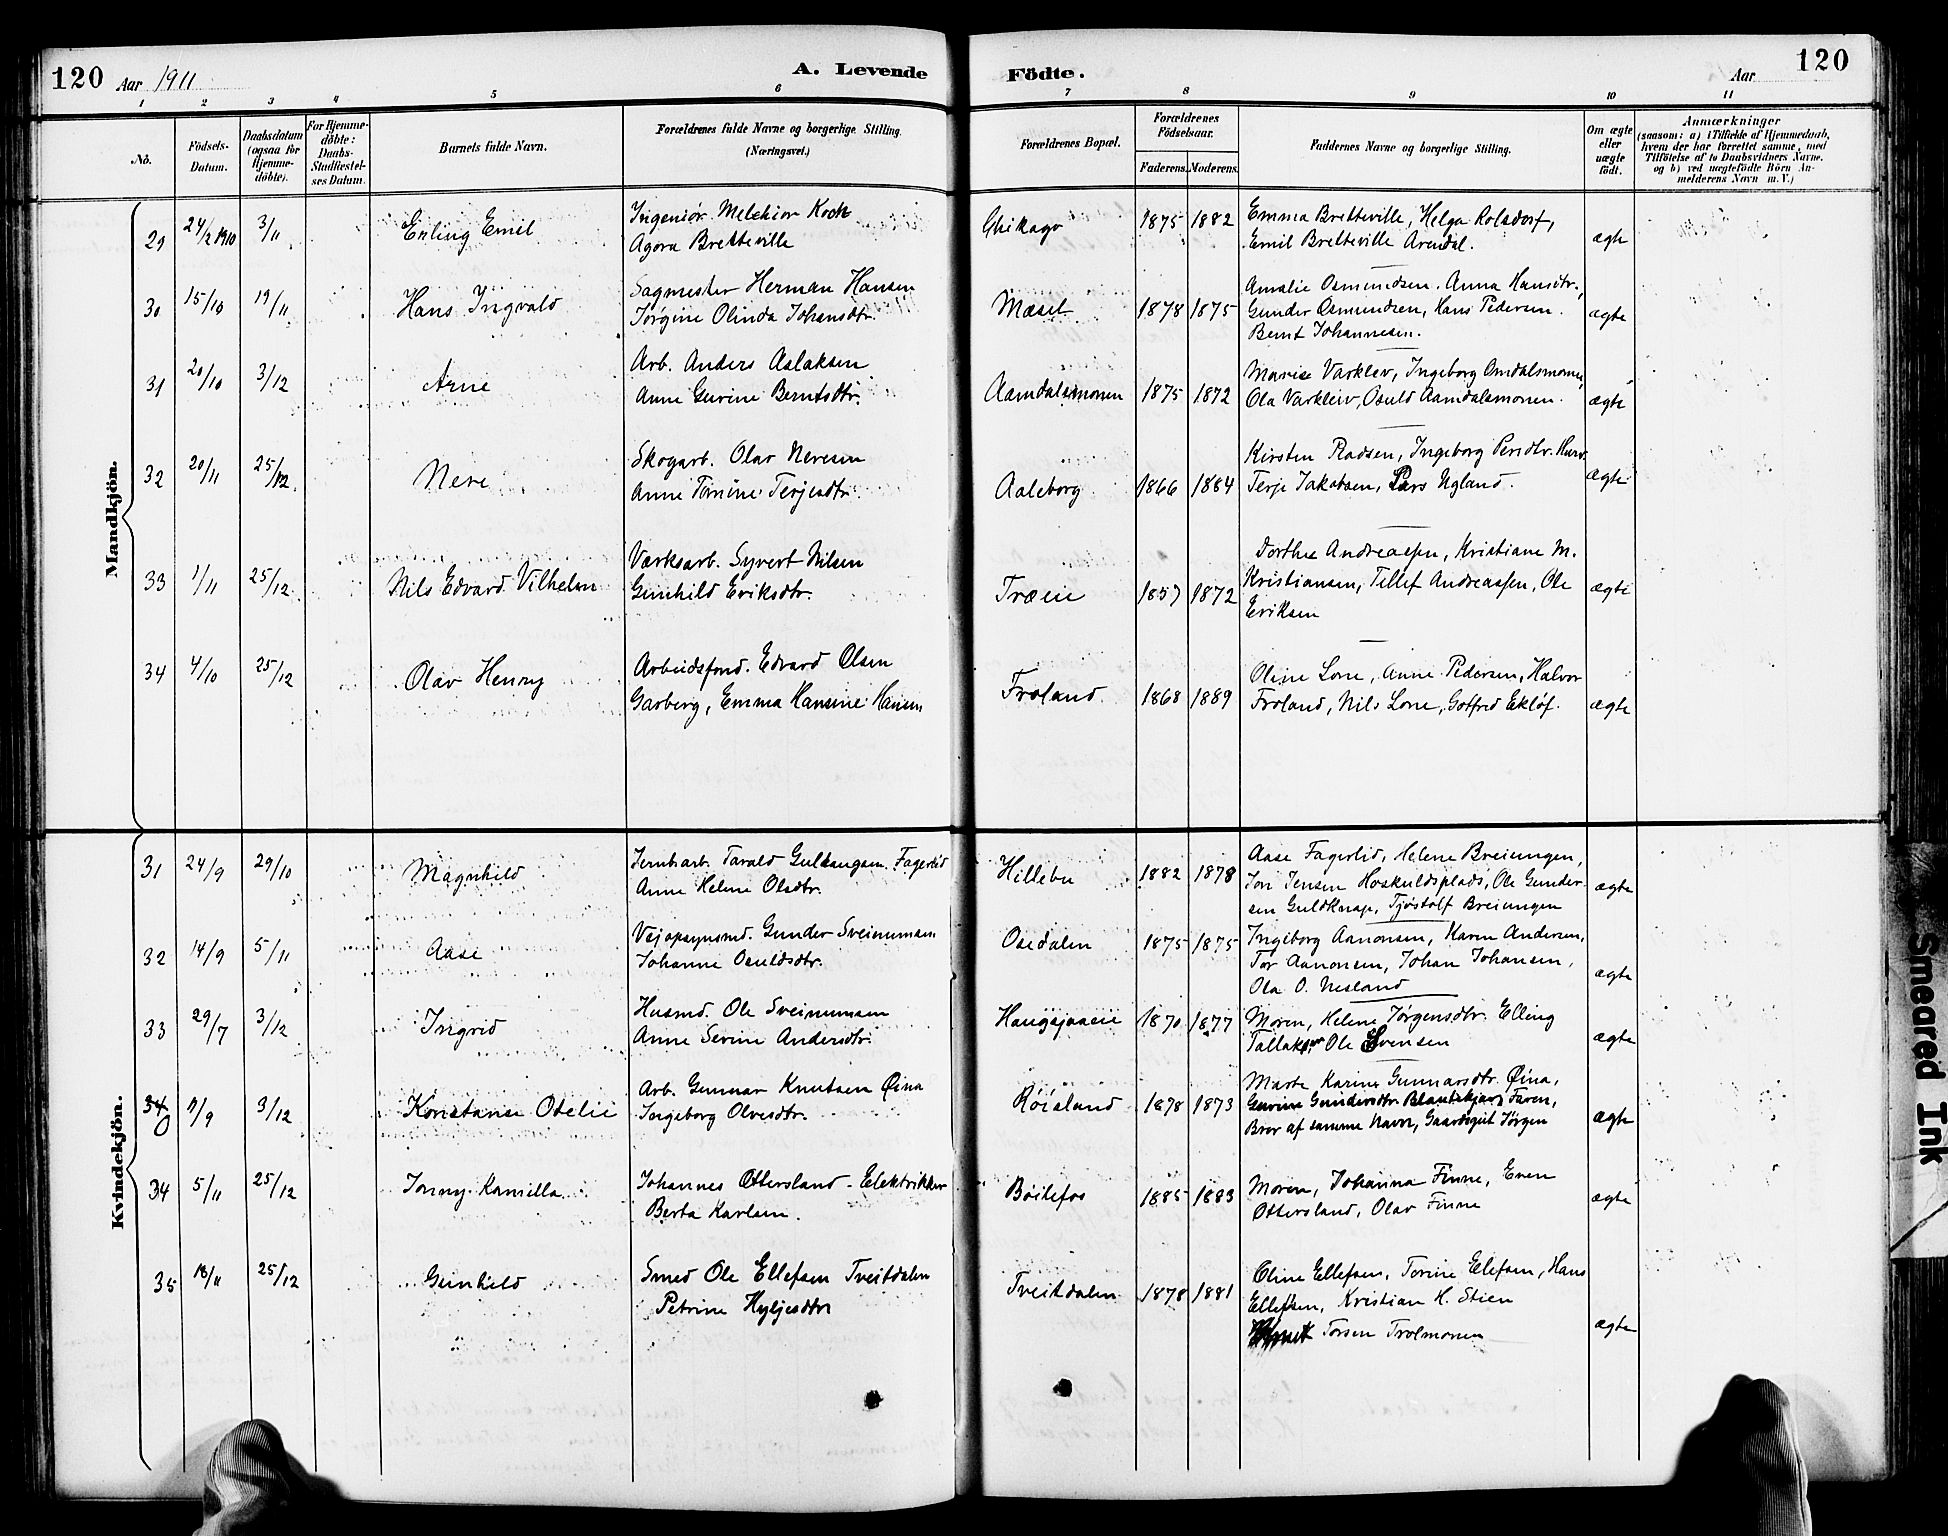 120 Aar 1911 A. Levende Födte. Aar 120
1 2 3 4 5 6 7 8 9 10 11
No.
Födsels-
Datum.
Daabsdatum
(ogsaa for
Hjemme-
döbte).
For Hjemme-
döbte:
Daabs-
Stadfæstel-
ses Datum.
Barnets fulde Navn.
Forældrenes fulde Navne og borgerlige Stilling.
(Næringsvei.)
Forældrenes Bopæl.
Forældrenes
Födselsaar.
Faderens. Moderens.
Faddernes Navne og borgerlige Stilling.
Om ægte
eller
uægte
födt.
Anmærkninger
(saasom: a) i Tilfælde af Hjemmedaab,
hvem der har forrettet samme, med
Tilföielse af to Daabsvidners Navne.
og b) ved uægtefödte Börn An-
melderens Navn m. V.)
Mandkjön.
29 24/2 1910 3/11 Erling Emil
Ingeniör Melchior Koch
Agora Bretteville
Chikago 1875 1882
Emma Bretteville, Helga Rolsdorf,
Emil Bretteville Arendal.
ægte
30 15/10 19/11 Hans Ingvald
Sagmester Herman Hansen
Jörgine Olinda Johansdtr.
Mæsel 1878 1875
Amalie Osmundsen. Anna Hansdtr.,
Gunder Osmundsen, Hans Pedersen.
Bernt Johannesen.
ægte
31 20/10 3/12 Arne
Arb. Anders Aslaksen
Anne Gurine Berntsdtr.
Aamdalsmonen 1875 1872
Marie Varklev, Ingeborg Omdalsmonen,
Ola Varkleiv, Osuld Aamdalsmonen.
ægte
32 20/11 25/12 Nere
Skogarb. Olav Neresen
Anne Tomine Terjesdtr.
Aaleborg 1866 1884
Kirsten Madsen, Ingeborg
Terje Jakobsen, Lars Ugland.
ægte
33 1/11 25/12 Nils Edvard Vilhelm
Værksarb. Syvert Nilsen
Gunhild Eriksdtr.
Træie 1857 1872
Dorthe Andreassen, Kristiane M.
Kristiansen, Tellef Andreassen, Ole
Eriksen
ægte
34 4/10 25/12 Olav Henry
Arbeidsfond. Edvard Olsen
Garberg, Emma Hansine Hansen
Froland. 1868 1889
Oline Lone, Anne Pedersen, Halvor
Froland, Nils Lone, Gotfred Eklöf.
ægte
Kvindekjön.
31 24/9 29/10 Magnhild
Jernbarb. Tarald Gullaugsen Fagerlid
Anne Helene Olsdtr.
Hillebu 1882 1878
Aase Fagerlid, Helene Breiungen,
Jon Jensen Hoskuldsplads, Ole Gunder-
sen Guldknap, Tjöstolf Breiungen
ægte
32 14/9 5/11 Aase
Vejopsynsmd. Gunder Sveinumsen
Johanne Osuldsdtr.
Osedalen 1875 1875
Ingeborg Aanonsen, Karen Andersen,
Tor Aanonsen, Johan Johansen,
Ola O. Nesland
ægte
33 29/7 3/12 Ingrid
Husmd. Ole Sveinumsen
Anne Sevine Andersdtr.
Haugsjaaeie 1870 1877
Moren, Helene Jörgensdtr. Elling
Tallaksen, Ole Svensen
ægte
34 7/9 3/12 Konstanse Otelie
Arb. Gunnar Knutsen Øina
Ingeborg Olvesdtr.
Röisland 1878 1873
Marte Karine Gunnarsdtr. Øina,
Gurine Gundersdtr. Blautekjær, Faren,
Bror af samme Navn, Gaardsgut Jörgen
ægte
34 5/11 25/12 Jonny Kamilla
Johannes Ottersland - Elektriker
Berta Karlsen.
Böilefos 1885 1883
Moren, Johanna Finne, Even
Ottersland, Olav Finne
ægte
35 18/11 25/12 Gunhild
Smed Ole Ellefsen Tveitdalen
Petrine Hyljesdtr
Tveitdalen 1878 1881
Oline Ellefsen, Torine Elefsen, Hans
Ellefsen, Kristian H. Stien
Torsen Trolmonen
ægte
Smeared Ink